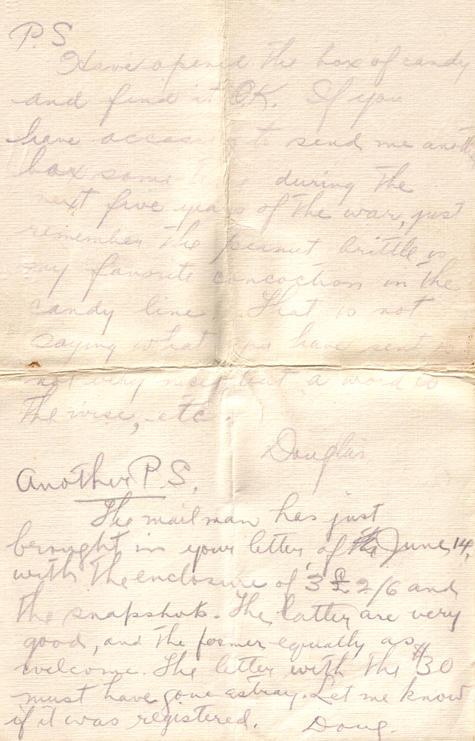 P.S.
Have opened the box of candy
and find it OK. If you
have occasion to send me another
box some time during the
next five years of the war, just
remember the peanut brittle is
my favorite concoction in the
candy line. That is not
saying what you have sent is
not very nice, but a word to
the wise, etc.
Douglas
Another P.S.
The mailman has just
brought in your letter of June 14,
with the enclosure of 3£ 2/6 and
the snapshots. The latter are very
good, and the former equally as
welcome. The letter with the $30
must have gone astray. Let me know
if it was registered. Doug.